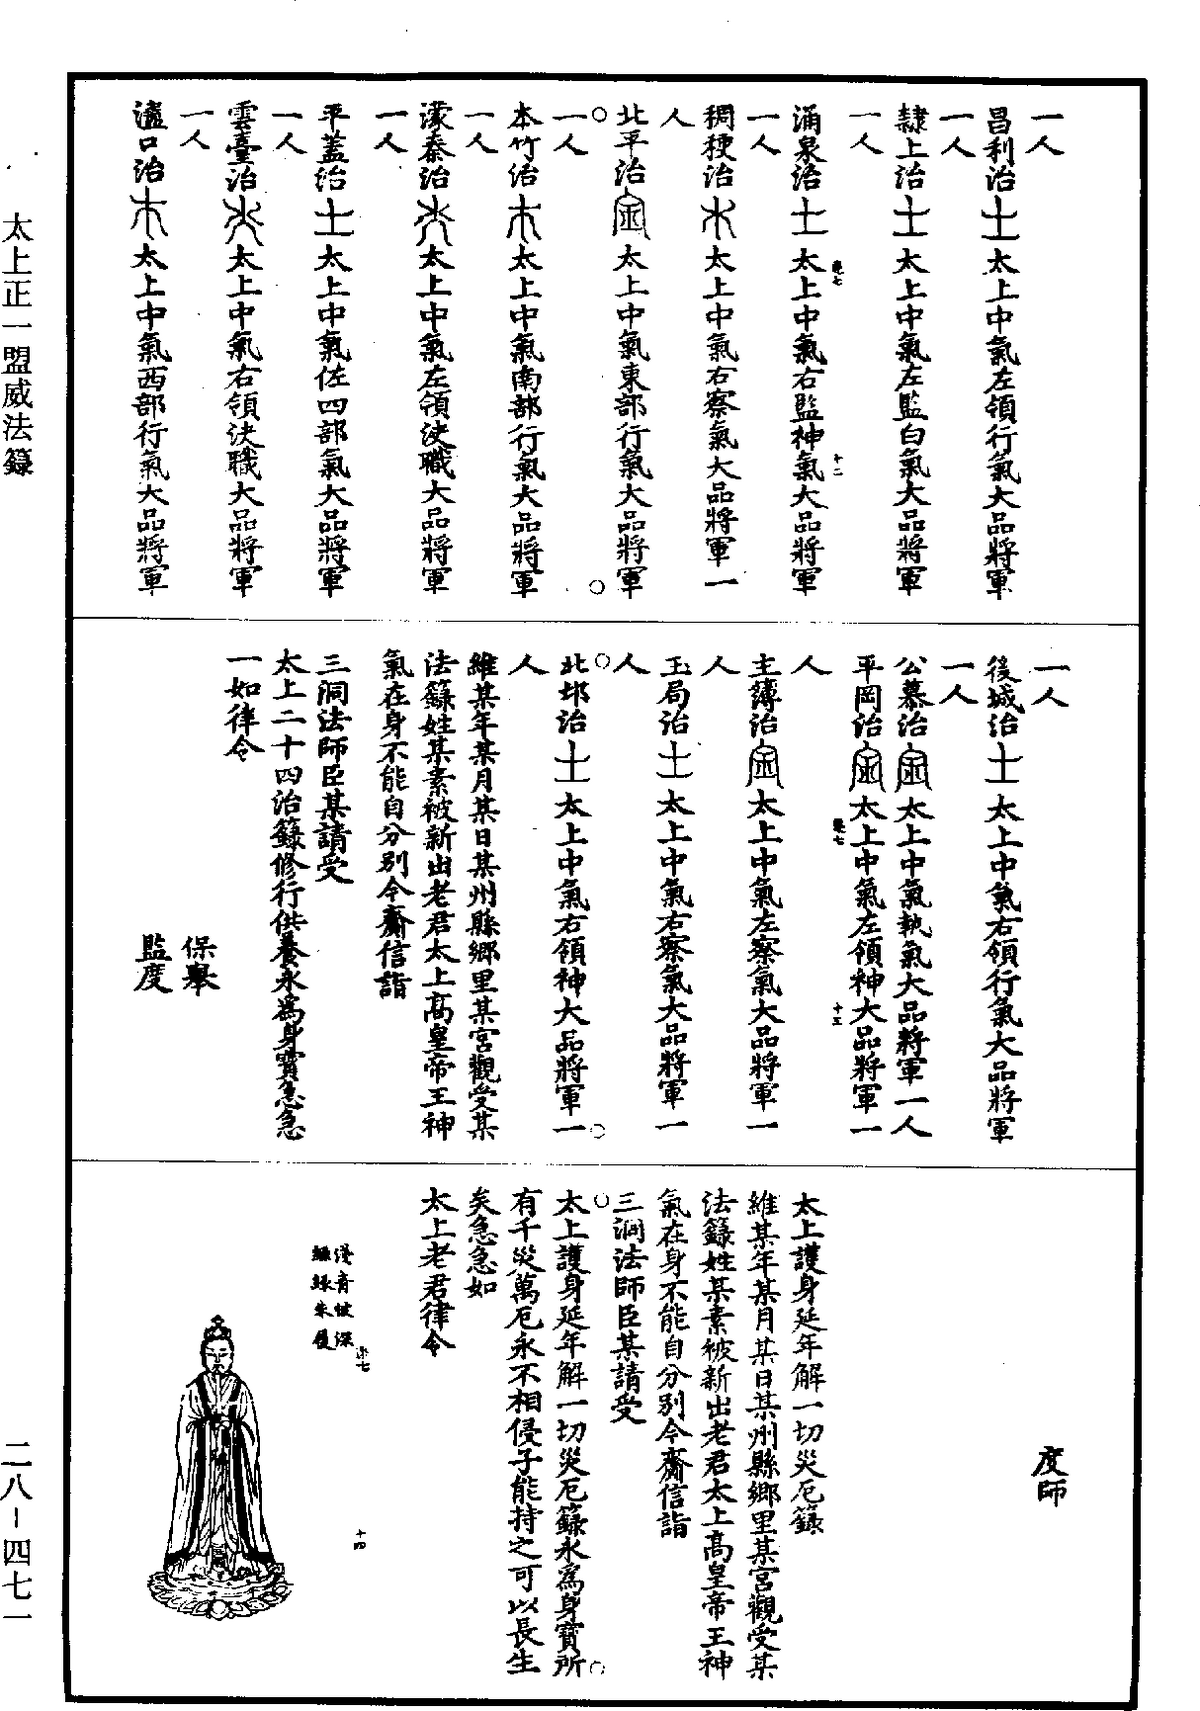 一人
昌利治土太上中氣左領行氣大品將軍
一人
隸上治土太上中氣左監白氣大品將軍
一人
涌泉治土太上中氣右監神氣大品將軍
一人
稠稉治水太上中氣右察氣大品將軍一
人
北平治金太上中氣東部行氣大品將軍
一人
本竹治木太上中氣南部行氣大品將軍
一人
濛秦治火太上中氣左領決職大品將軍
一人
平蓋治土太上中氣佐四部氣大品將軍
一人
雲臺治火太上中氣右領決職大品將軍
一人
瀘口治木太上中氣西部行氣大品將軍
一人
後城治土太上中氣右領行氣大品將軍
一人
公慕治金太上中氣執氣大品將軍一人
平岡治金太上中氣左領神大品將軍一
人
主薄治金太上中氣左察氣大品將軍一
人
玉局治土太上中氣右察氣大品將軍一
人
北邙治土太上中氣右領神大品將軍一
人
維某年某月某日某州縣鄉里某宮觀受某
法籙姓某素被新出老君太上高皇帝王神
氣在身不能自分別令齎信詣
三洞法師臣某請受
太上二十四治籙修行供養永為身寶急急
一如律令
保舉
監度
度師
太上護身延年解一切災厄籙
維某年某月某日某州縣鄉里某宮觀受某
法籙姓某素被新出老君太上高皇帝王神
氣在身不能自分別令齎信詣
三洞法師臣某請受
太上護身延年解一切災厄籙永為身寶所
有千災萬厄永不相侵子能持之可以長生
矣急急如
太上老君律令
十二
十三
十四
太上正一盟威法籙
二八－四七一